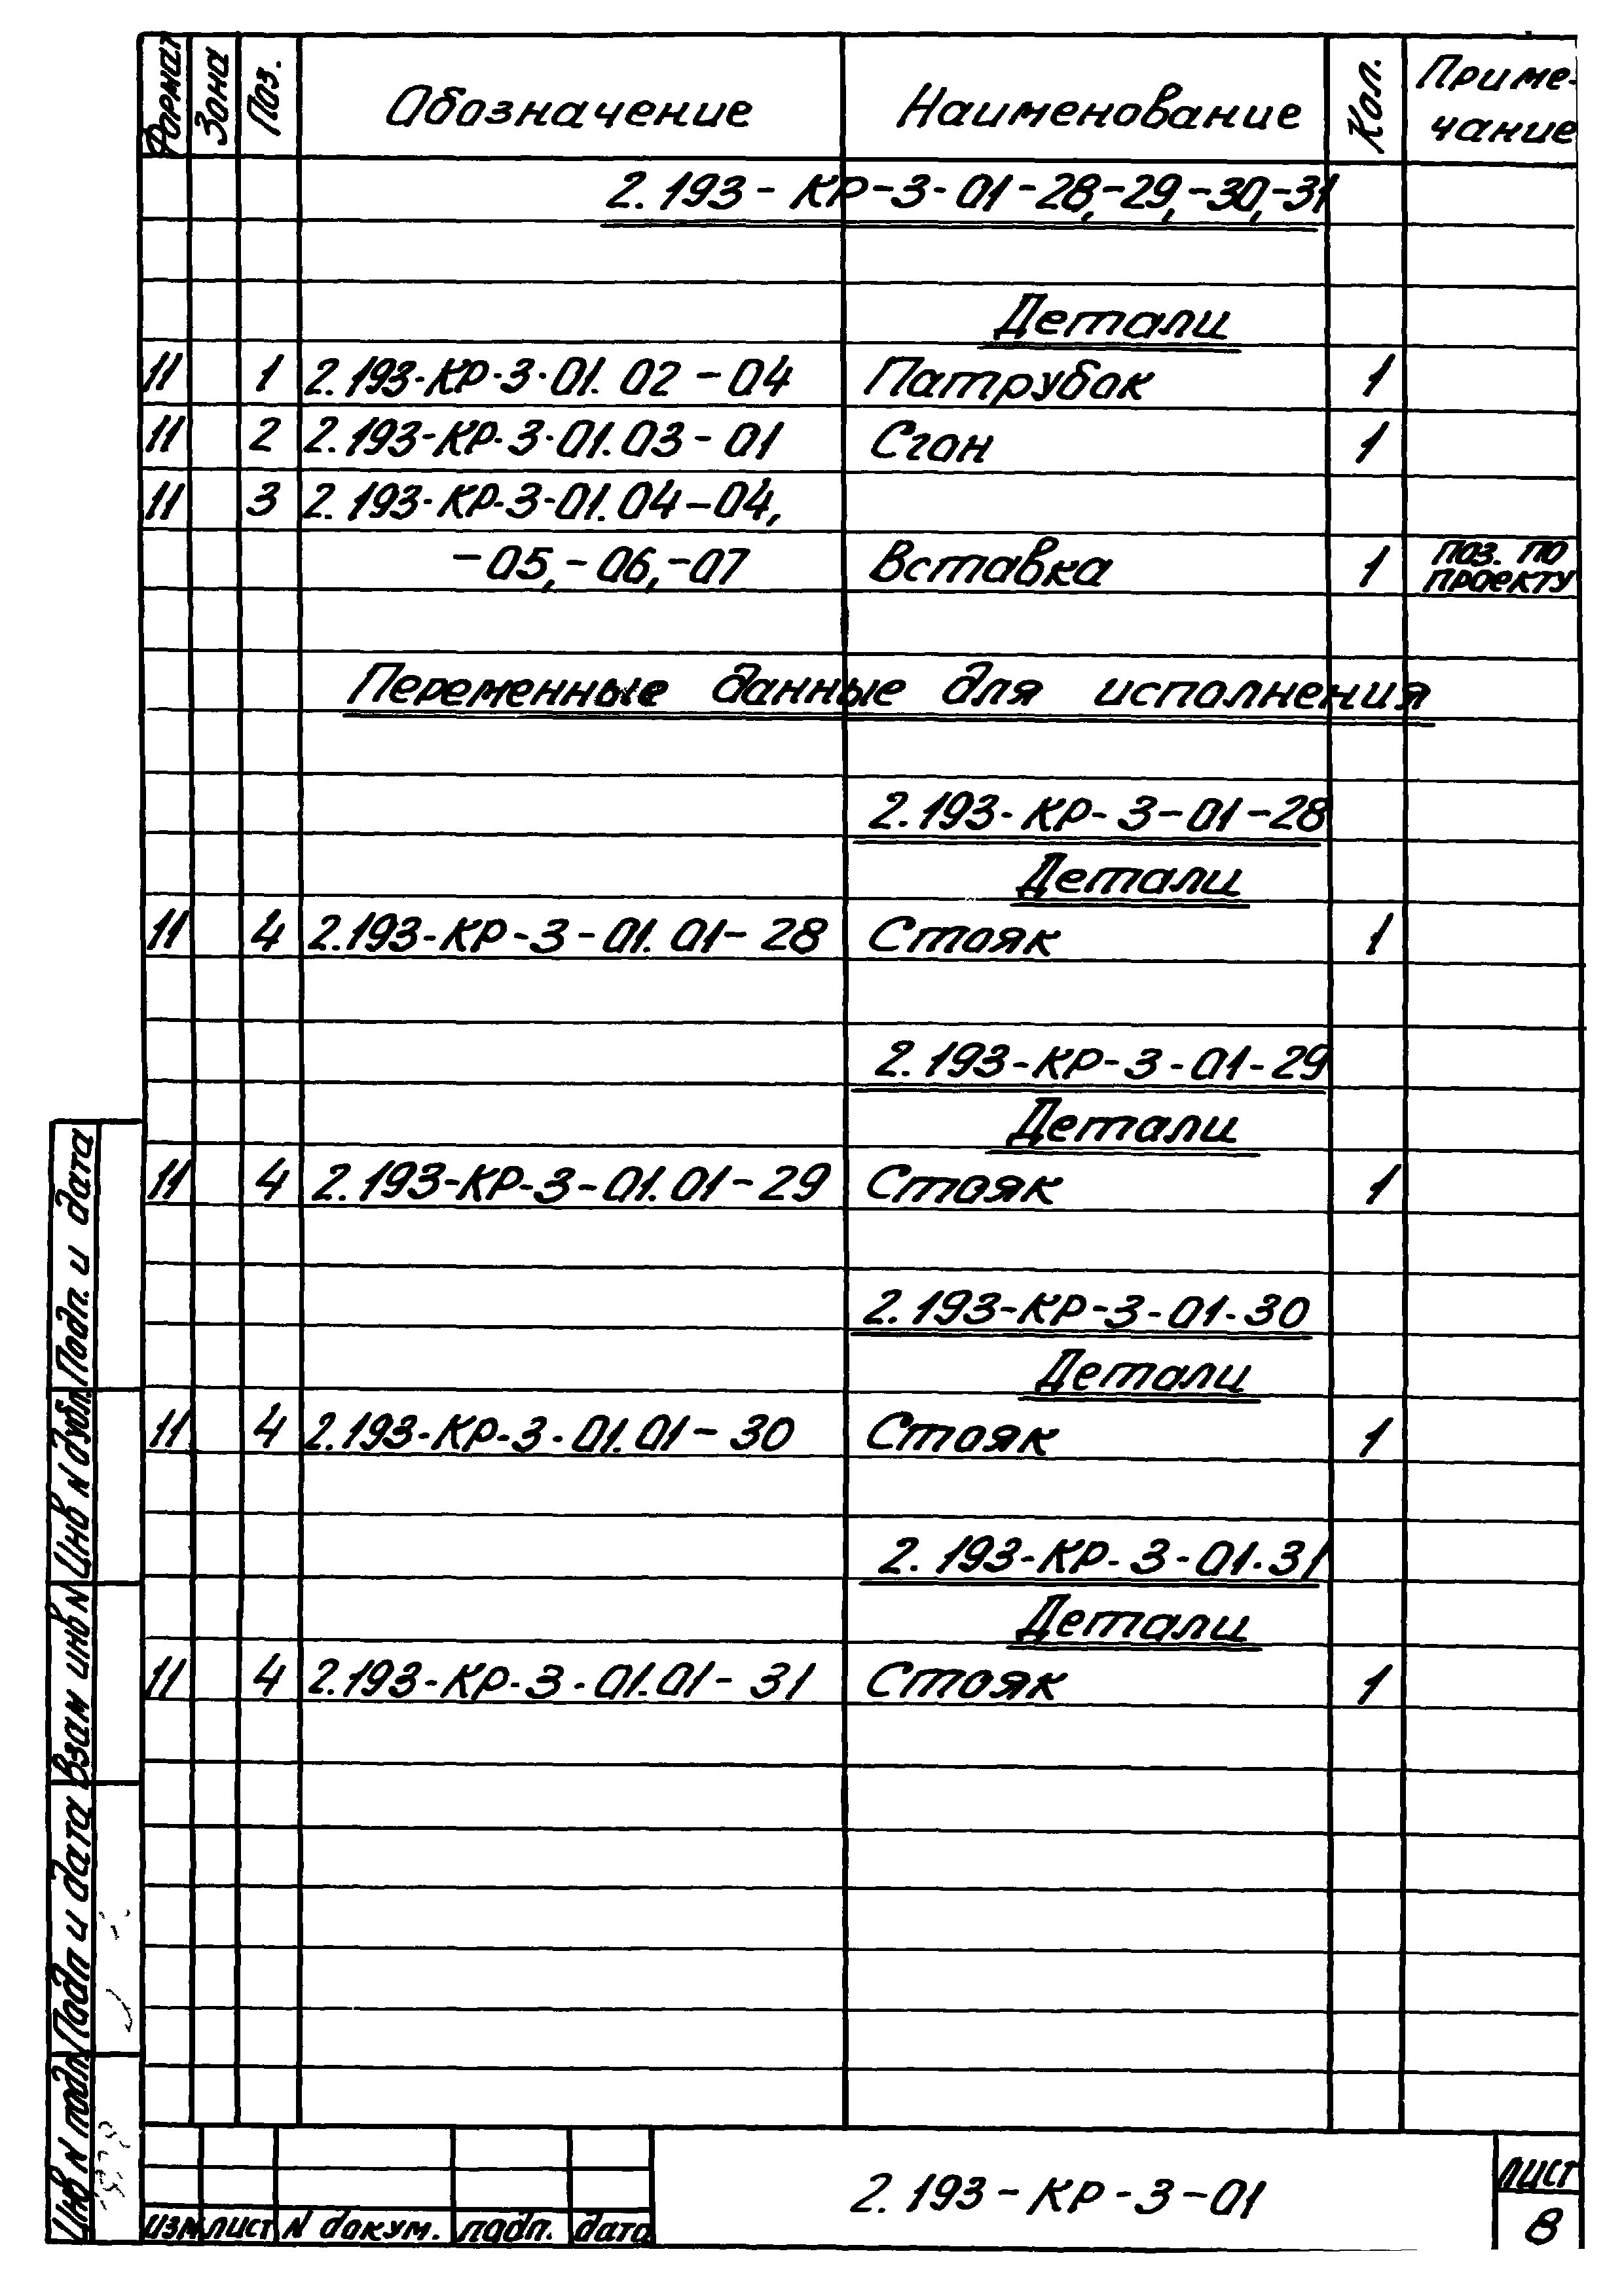 Формат Зона Поз. Обозначение Наименование Кол. Приме-
чание
2.193-КР-3-01-28,-29,-30,-31
Детали
11 1 2.193-КР-3-01.02-04 Патрубок 1
11 2 2.193-КР-3-01.03-01 Сгон 1
11 3 2.193-КР-3-01.04-04,
-05,-06,-07 Вставка 1 поз. по
проекту
Переменные данные для исполнения
2.193-КР-3-01-28
Детали
11 4 2.193-КР-3-01.01-28 Стояк 1
2.193-КР-3-01-29
Детали
11 4 2.193-КР-3-01.01-29 Стояк 1
2.193-КР-3-01-30
Детали
11 4 2.193-КР-3-01.01-30 Стояк 1
2.193-КР-3-01-31
Детали
11 4 2.193-КР-3-01.01-31 Стояк 1
Подп. и дата
Инв N дубл.
Взам инв N
Подп и дата
Инв N подл.
изм лист N докум. подп. дата
2.193-КР-3-01
лист
8